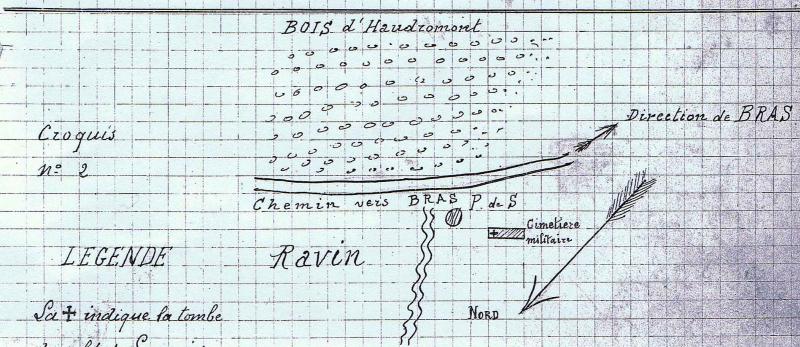 BOIS d'Haudromont
Direction de BRAS
Croquis
nº 2
Chemin vers BRAS P. de S
Cimetière
militaire
LEGENDE
Ravin
NORD
La + indique la tombe